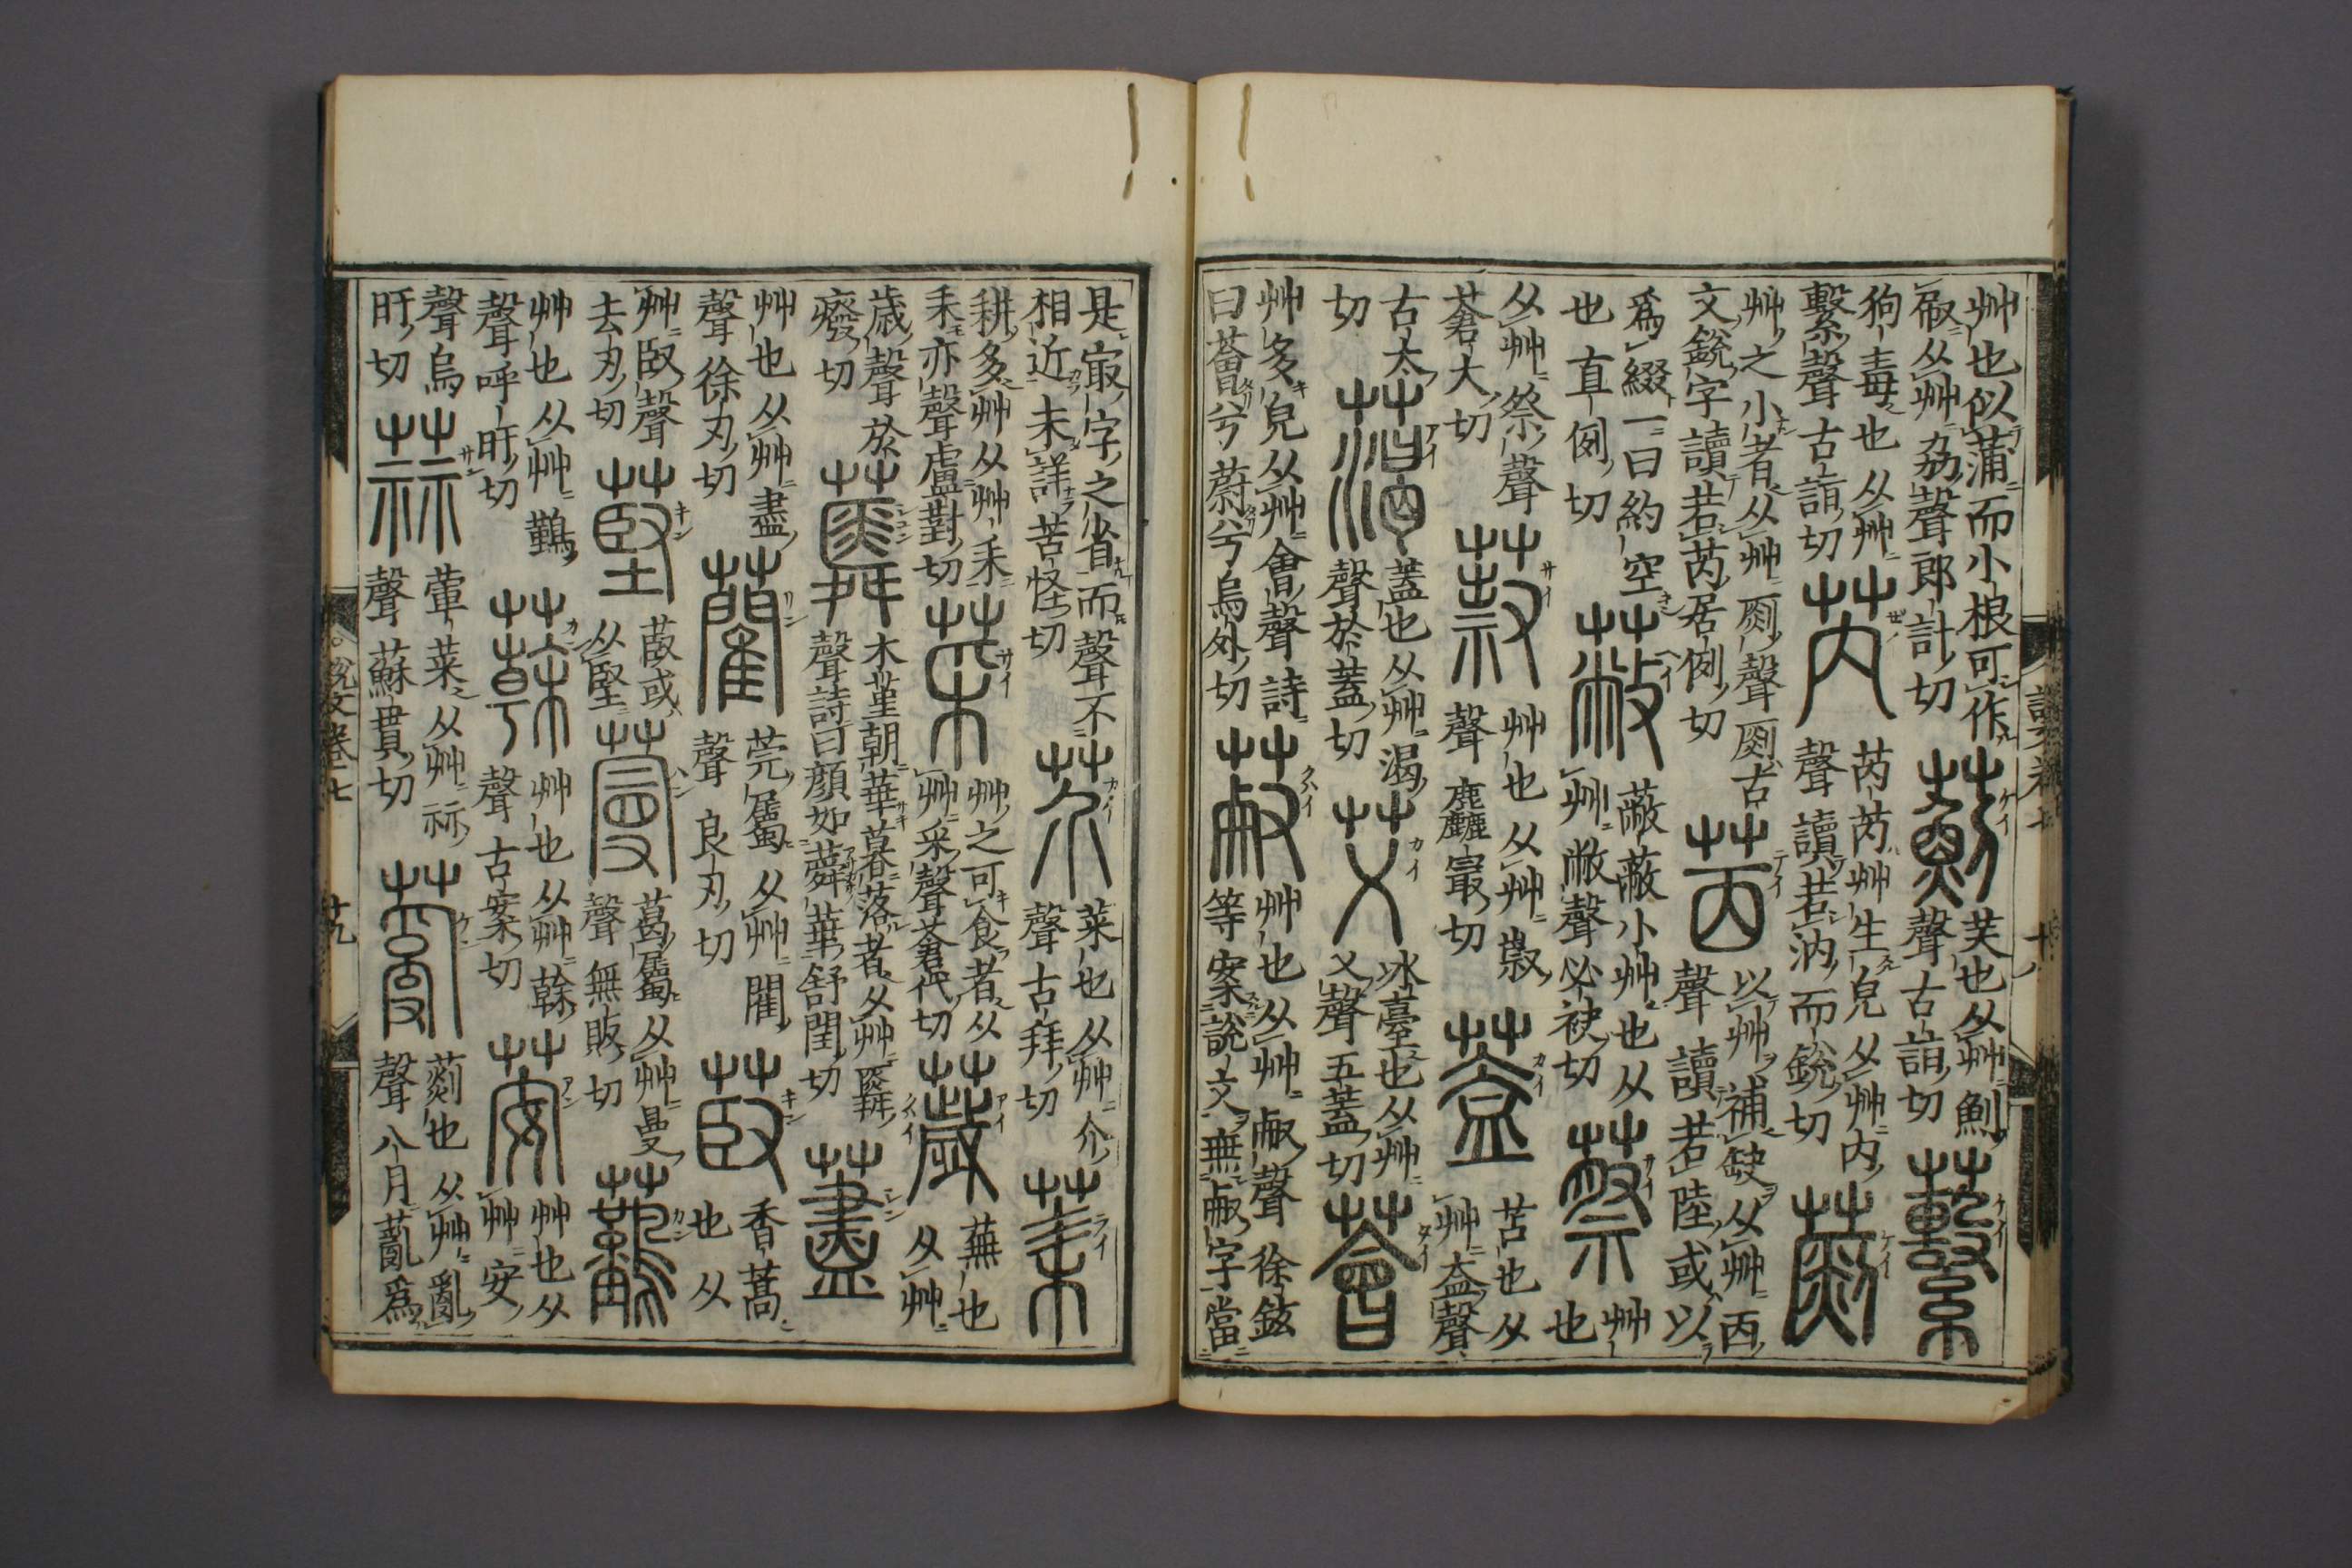 艸也似蒲而小根可作
㕞从艸劦聲郎計切
薊
芺也从艸魝
聲古詣切
蘻
狗毒也从艸
繫聲古詣切
芮
芮芮艸生皃从艸内
聲讀若汭而銳切
艸之小者从艸聲古
文銳字讀若芮居例切
茵
以艸補缺从艸㐁
聲讀若陸或以
爲綴一曰約空
也直例切
蔽
蔽蔽小艸也从
艸敝聲必袂切
蔡
艸
也
从艸祭聲
蒼大切
艸也从艸
聲麤最切
葢
苫也从
艸盇聲
古太
切
蓋也从艸渴
聲於蓋切
艾
冰臺也从艸
乂聲五蓋切
薈
艸多皃从艸會聲詩
曰薈兮蔚兮烏外切
艸也从艸聲徐鉉
等案說文無字當
是字之省而聲不
相近未詳苦怪切
芥
菜也从艸介
聲古拜切
耕多艸从艸耒
耒亦聲盧對切
菜
艸之可食者从
艸采聲蒼代切
薉
蕪也
从艸
歲聲於
癈切
蕣
木堇朝華暮落者从艸䑞
聲詩曰顏如蕣華舒閏切
藎
艸也从艸盡
聲徐刃切
藺
莞屬从艸閵
聲良刃切
菣
香蒿
也从
艸臤聲
去刃切
菣或
从堅
蔓
葛屬从艸曼
聲無販切
艸也从艸
聲呼旰切
艸也从艸
聲古案切
荌
艸也从
艸安
聲烏
旰切
蒜
葷菜从艸祘
聲蘇貫切
薍
䓴也从艸亂
聲八月薍爲
說文卷七
十八
說文卷七
十九